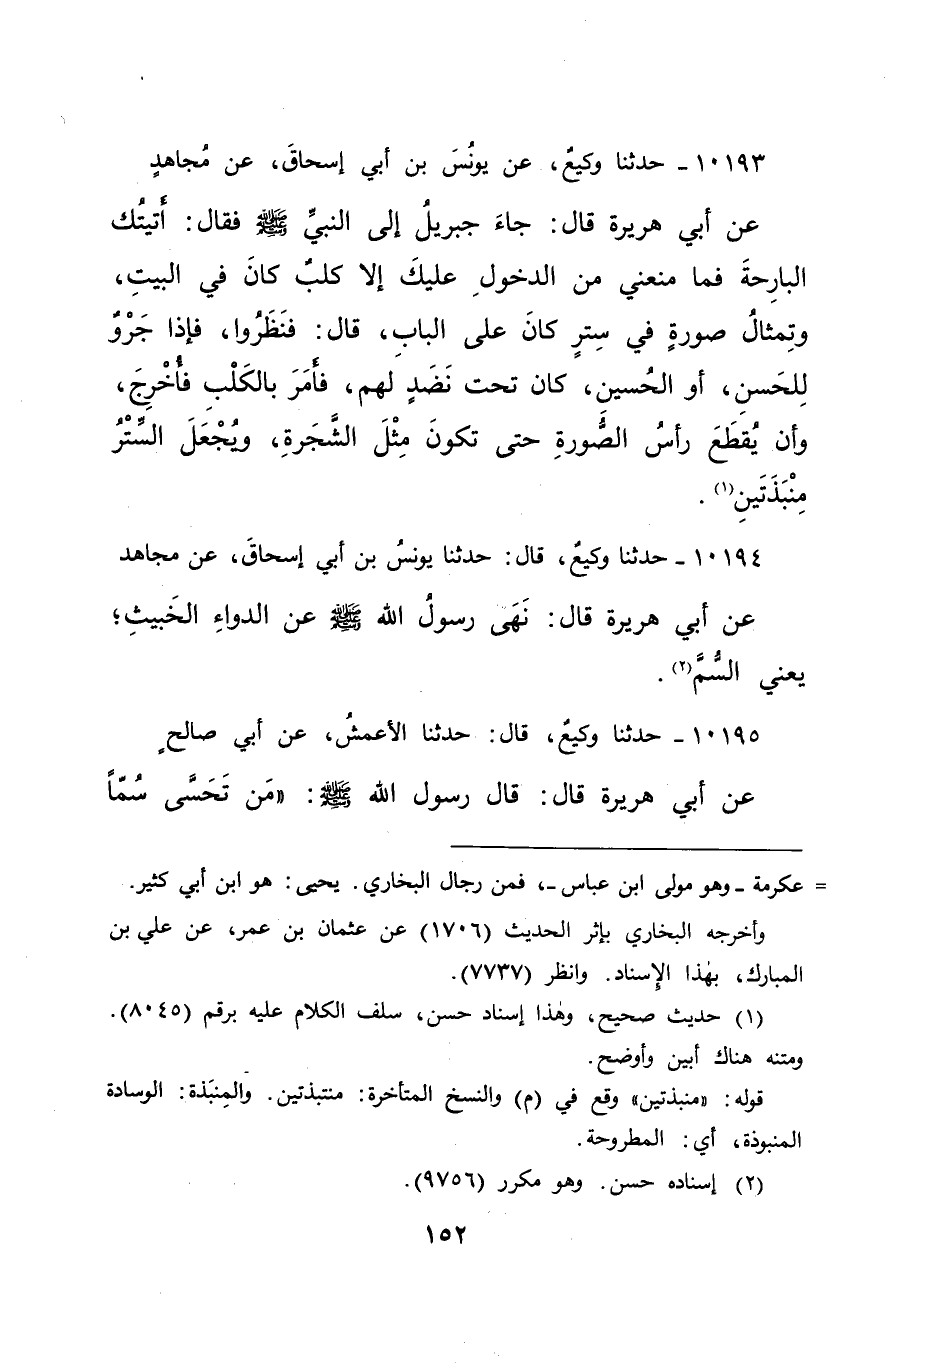 ١٠١٩٣ - حدثنا وكيعٌ، عن يونُسَ بن أبي إسحاقَ، عن مُجاهدٍ
عن أبي هريرة قال: جاءَ جبريلُ إلى النبيِّ ﷺ فقال: أَتيتُك
البارِحةَ فما منعني من الدخولِ عليكَ إلا كلبٌ كانَ في البيتِ،
وتِمثالُ صورةٍ في سِترٍ كانَ على البابِ، قال: فنَظَرُوا، فإذا جَرْوٌ
لِلحَسنِ، أو الحُسين، كان تحت نَضَدٍ لهم، فأَمَرَ بالكَلْبِ فأُخْرِجَ،
وأن يُقطَعَ رأسُ الصُّورةِ حتى تكونَ مِثْلَ الشَّجَرةِ، ويُجْعَلَ السِّتْرُ
مِنْبَذَتَينِ(١).
١٠١٩٤ - حدثنا وكيعٌ، قال: حدثنا يونسُ بن أبي إسحاقَ، عن مجاهد
عن أبي هريرة قال: نَهَى رسولُ الله ﷺ عن الدواءِ الخَبيثِ؛
يعني السُّمَّ(٢).
١٠١٩٥ - حدثنا وكيعٌ، قال: حدثنا الأعمشُ، عن أبي صالحٍ
عن أبي هريرة قال: قال رسول الله ﷺ: «مَن تَحَسَّى سُمّاً
= عكرمة - وهو مولى ابن عباس -، فمن رجال البخاري. يحيى: هو ابن أبي كثير.
وأخرجه البخاري بإثر الحديث (١٧٠٦) عن عثمان بن عمر، عن علي بن
المبارك، بهٰذا الإسناد. وانظر (٧٧٣٧).
(١) حديث صحيح، وهٰذا إسناد حسن، سلف الكلام عليه برقم (٨٠٤٥).
ومتنه هناك أبين وأوضح.
قوله: «منبذتين» وقع في (م) والنسخ المتأخرة: منتبذتين. والمِنبَذة: الوسادة
المنبوذة، أي: المطروحة.
(٢) إسناده حسن. وهو مكرر (٩٧٥٦).
١٥٢